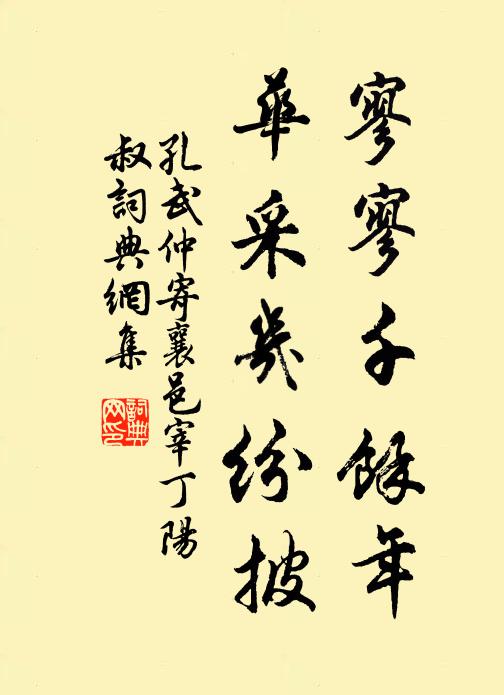 寥寥千餘年
華采幾紛披
孔武仲寄襄邑宰丁陽
叔詞典網集
詞典
网印